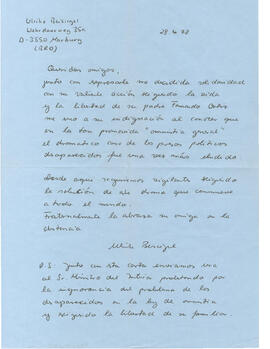 Ulrike Beisiegel
Wehrdaerweg 35a
D-3550 Marburg
(BRD)
28.4.78
Queridos amigos,
junto con expresarle mi decidida solidaridad
con su valiente acción exigiendo la vida
y la libertad de su padre Fernando Ortiz
me uno a su indignación al constar que
en la tan pronunciada "amnistia general"
el dramatico caso de los presos políticos
desaparecidos fue una vez más eludido
Desde aquí seguiremos vigilante exigiendo
la solución de este drama que conmueve
a todo el mundo.
Fraternalmente la abraza su amiga en la
distancia
Ulrike Beisiegel
P.S: Junto con esta carta enviamos una
al Sr. Ministro del Interior protestando por
la ignorancia del problema de los
desaparecidos en la ley de amnistia
y exigiendo la libertad de su familiar.